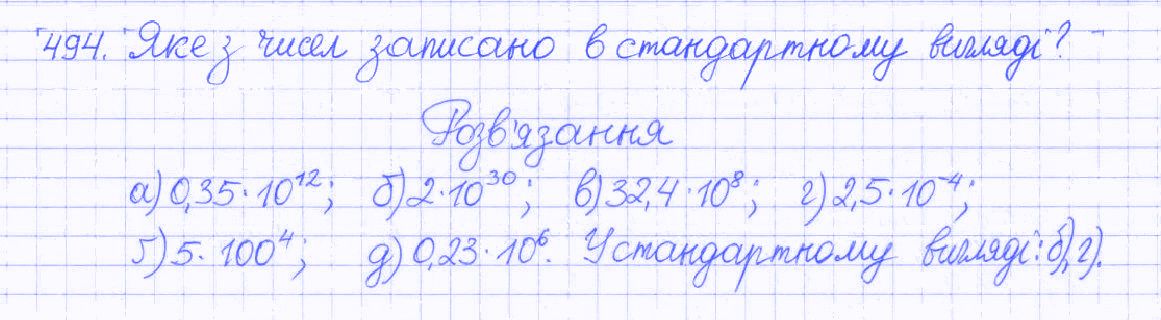 494. Яке з чисел записано в стандартному вигляді?
Розв'язання
а) 0,35·10¹²; б) 2·10³⁰; в) 32,4·10⁸; г) 2,5·10⁻⁴;
ґ) 5·100⁴; д) 0,23·10⁶. У стандартному вигляді: б), г).